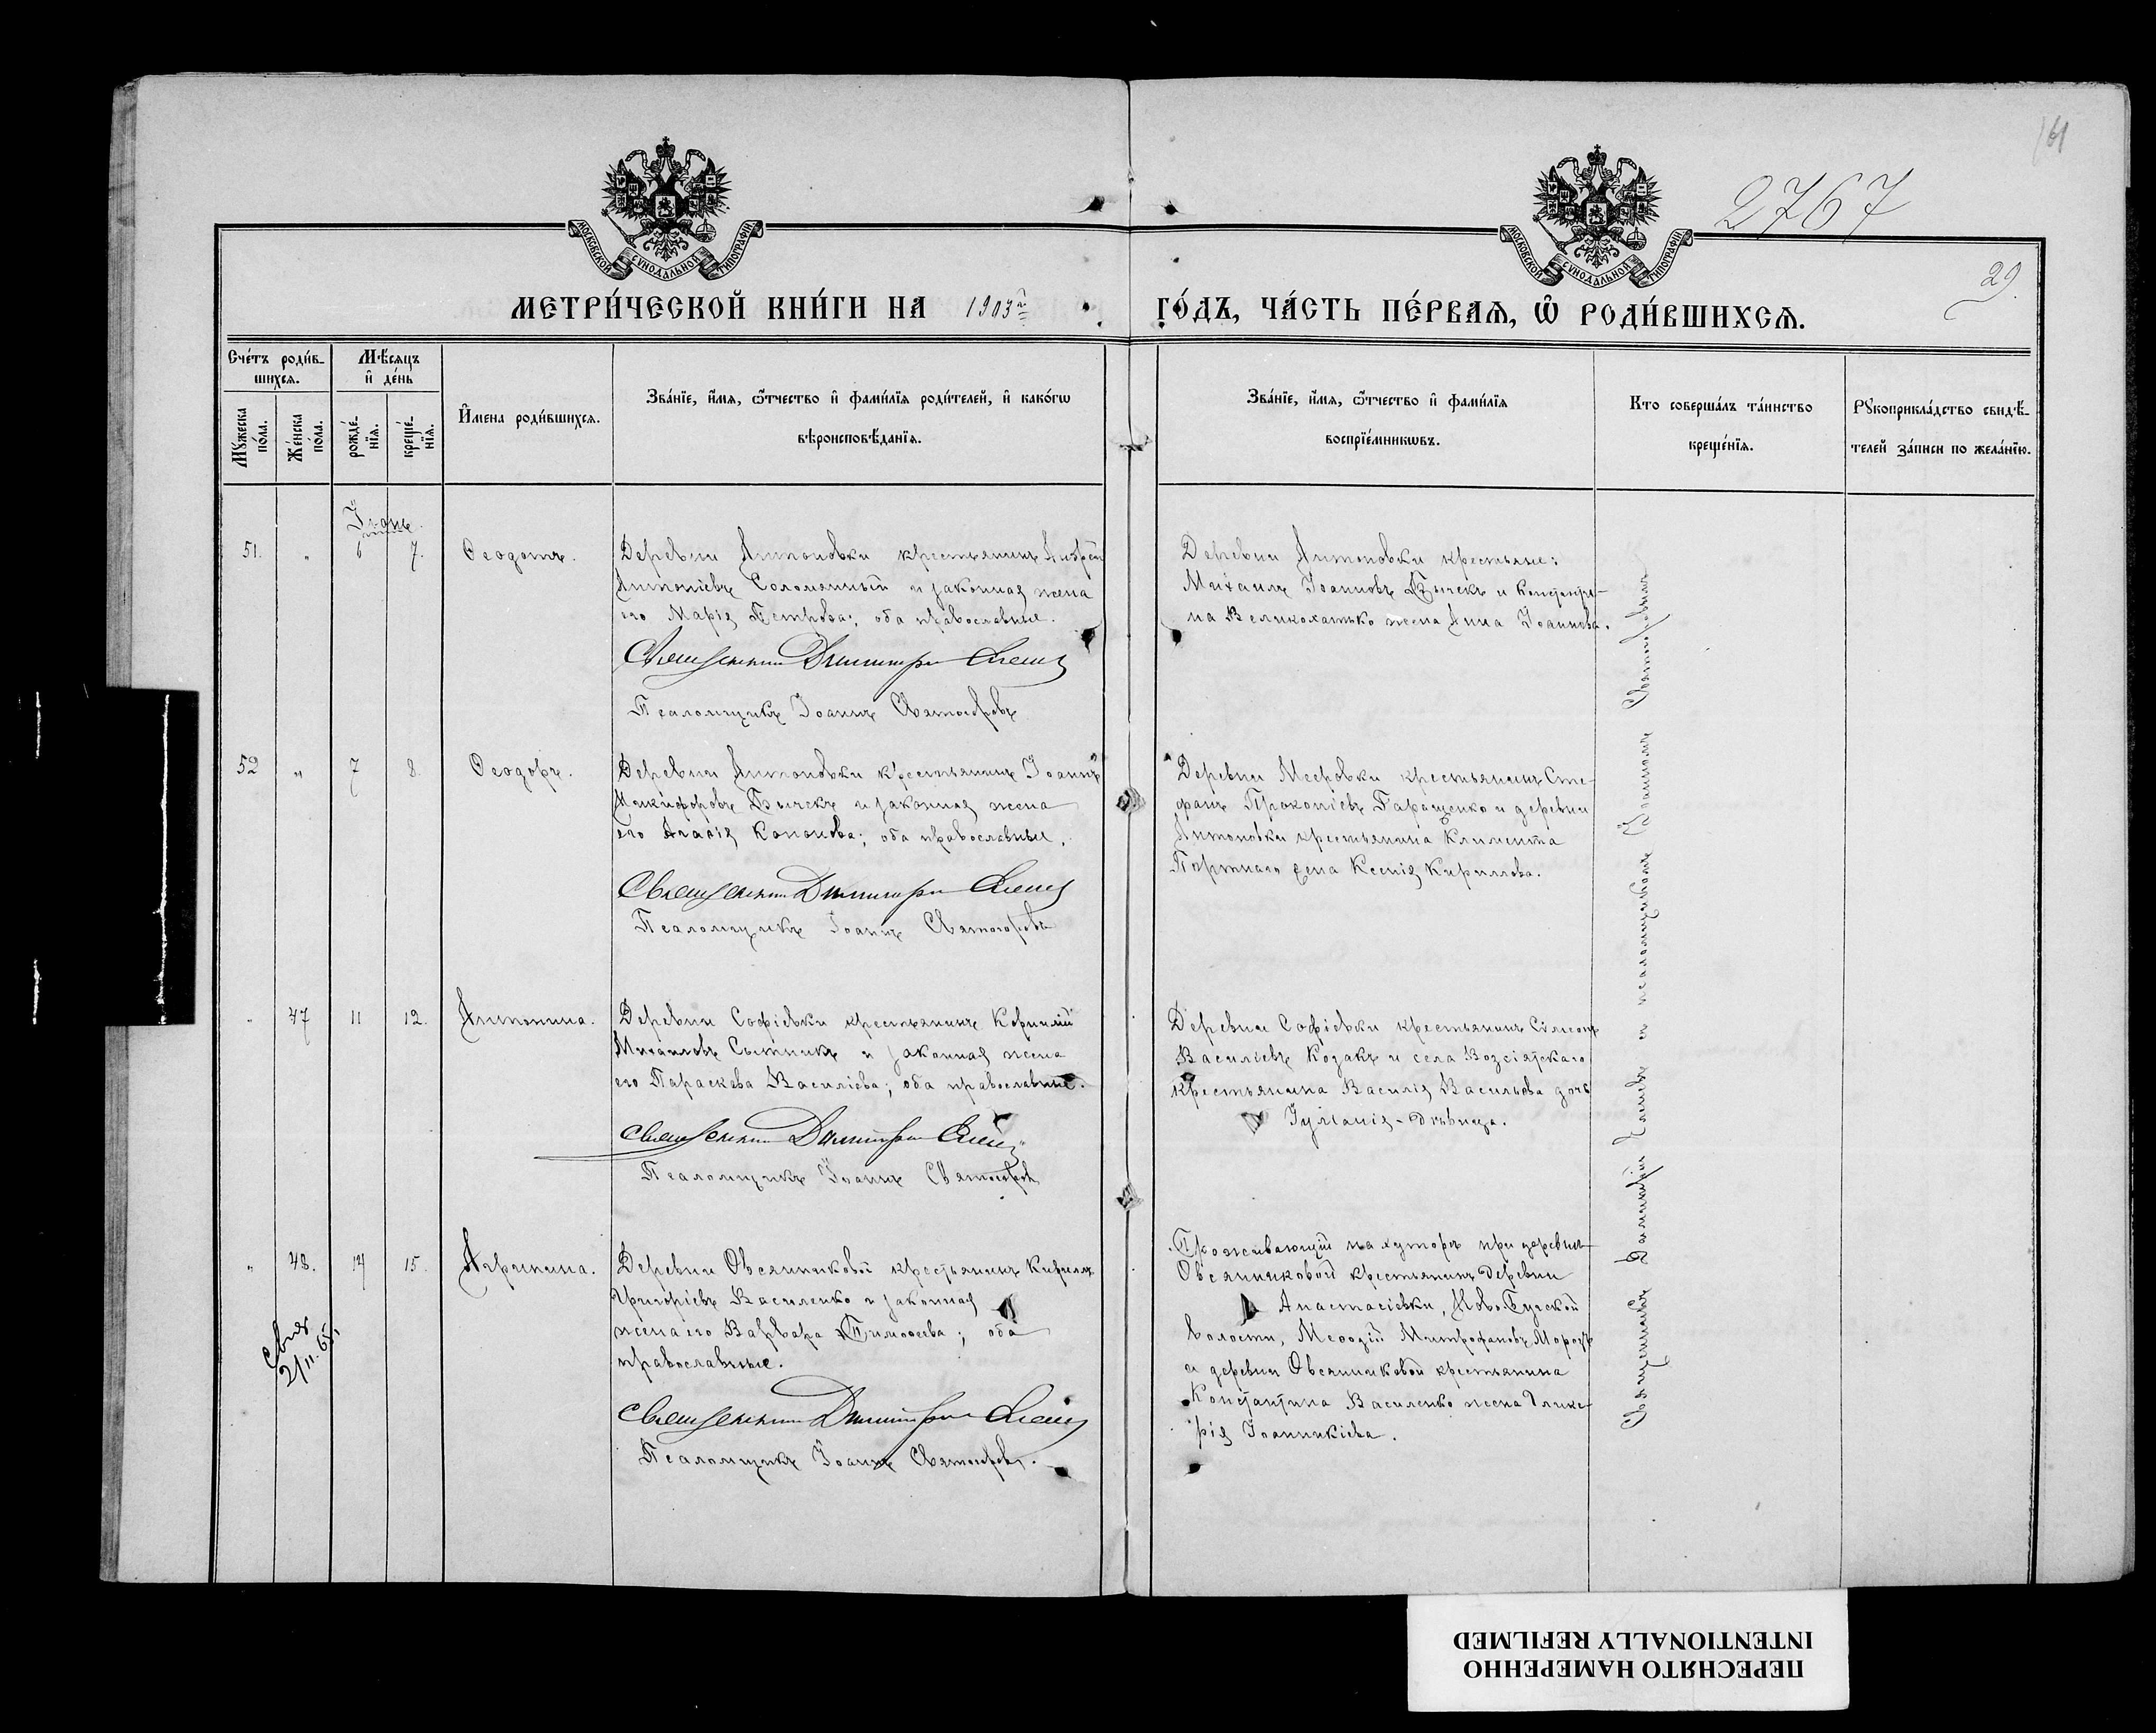 161
2767
29.
МОСКОВСКОЙ СѴНОДАЛЬНОЙ ТИПОГРАФІИ
МОСКОВСКОЙ СѴНОДАЛЬНОЙ ТИПОГРАФІИ
МЕТРИ́ЧЕСКОЙ КНИ́ГИ НА 1903 г҃
ГО́ДЪ, ЧА́СТЬ ПЕ́РВАѦ, Ѡ҆ РОДИ́ВШИХСѦ.
Сче́тъ роди́в-
шихсѧ.
Мѣ́сѧцъ
и҆ де́нь
Мꙋ́жеска
по́ла.
Же́нска
по́ла.
рожде́-
нїѧ.
креще́-
нїѧ.
И҆мена̀ роди́вшихсѧ.
Зва́нїе, и҆́мѧ, ѻ҆́тчество и҆ фами́лїѧ роди́телей, и҆ како́гѡ
вѣроисповѣ́данїѧ.
Зва́нїе, и҆́мѧ, ѻ҆́тчество и҆ фами́лїѧ
воспрїе́мникѡвъ.
Кто̀ соверша́лъ та́инство
креще́нїѧ.
Рꙋкоприкла́дство свидѣ́-
телей за́писи по жела́нїю.
51. " Іюнь 6 7. Ѳеодотъ.
Деревни Антоновки крестьянинъ Андрей
Антоніевъ Соломянный и законная жена
его Марія Петрова; оба православные.
Священникъ Димитрій
Псаломщикъ Іоаннъ Святогоровъ
Деревни Антоновки крестьяне:
Михаилъ Іоанновъ Бычекъ и Константи-
на Великохатько жена Анна Іоаннова.
52 " 7 8. Ѳеодоръ.
Деревни Антоновки крестьянинъ Іоаннъ
Никифоровъ Бычекъ и законная жена
его Агаѳія Кононова; оба православные.
Священникъ Димитрій
Псаломщикъ Іоаннъ Святогоровъ
Деревни Мееровки крестьянинъ Сте-
фанъ Прокопіевъ Гаращенко и деревни
Антоновки крестьянина Климента
Портного жена Ксенія Кириллова.
" 47 11 12. Антонина.
Деревни Софіевки крестьянинъ Корнилій
Михаиловъ Сытникъ и законная жена
его Параскева Василіева; оба православные.
Священникъ Димитрій
Псаломщикъ Іоаннъ Святогоровъ
Деревни Софіевки крестьянинъ Сѵмеонъ
Василіевъ Козакъ и села Возсіятскаго
крестьянина Василія Васильева дочь
Іуліанія - дѣвица.
" 48. 14 15. Агрипина.
Деревни Овсянниковой крестьянинъ Кириллъ
Григоріевъ Василенко и законная
жена его Варвара Тимоѳеева; оба
православные.
Священникъ Димитрій
Псаломщикъ Іоаннъ Святогоровъ.
Проживающій на хуторѣ при деревнѣ
Овсянниковой крестьянинъ деревни
Анастасіевки, Ново-Бугской
волости, Меѳодій Митрофановъ Морозъ
и деревни Овсянниковой крестьянина
Константина Василенко жена Глике-
рія Іоанникіева.
2/11.65.
Священникъ Димитрій и псаломщикомъ Іоанномъ Святогоровымъ
ПЕРЕСНЯТО НАМЕРЕННО
INTENTIONALLY REFILMED